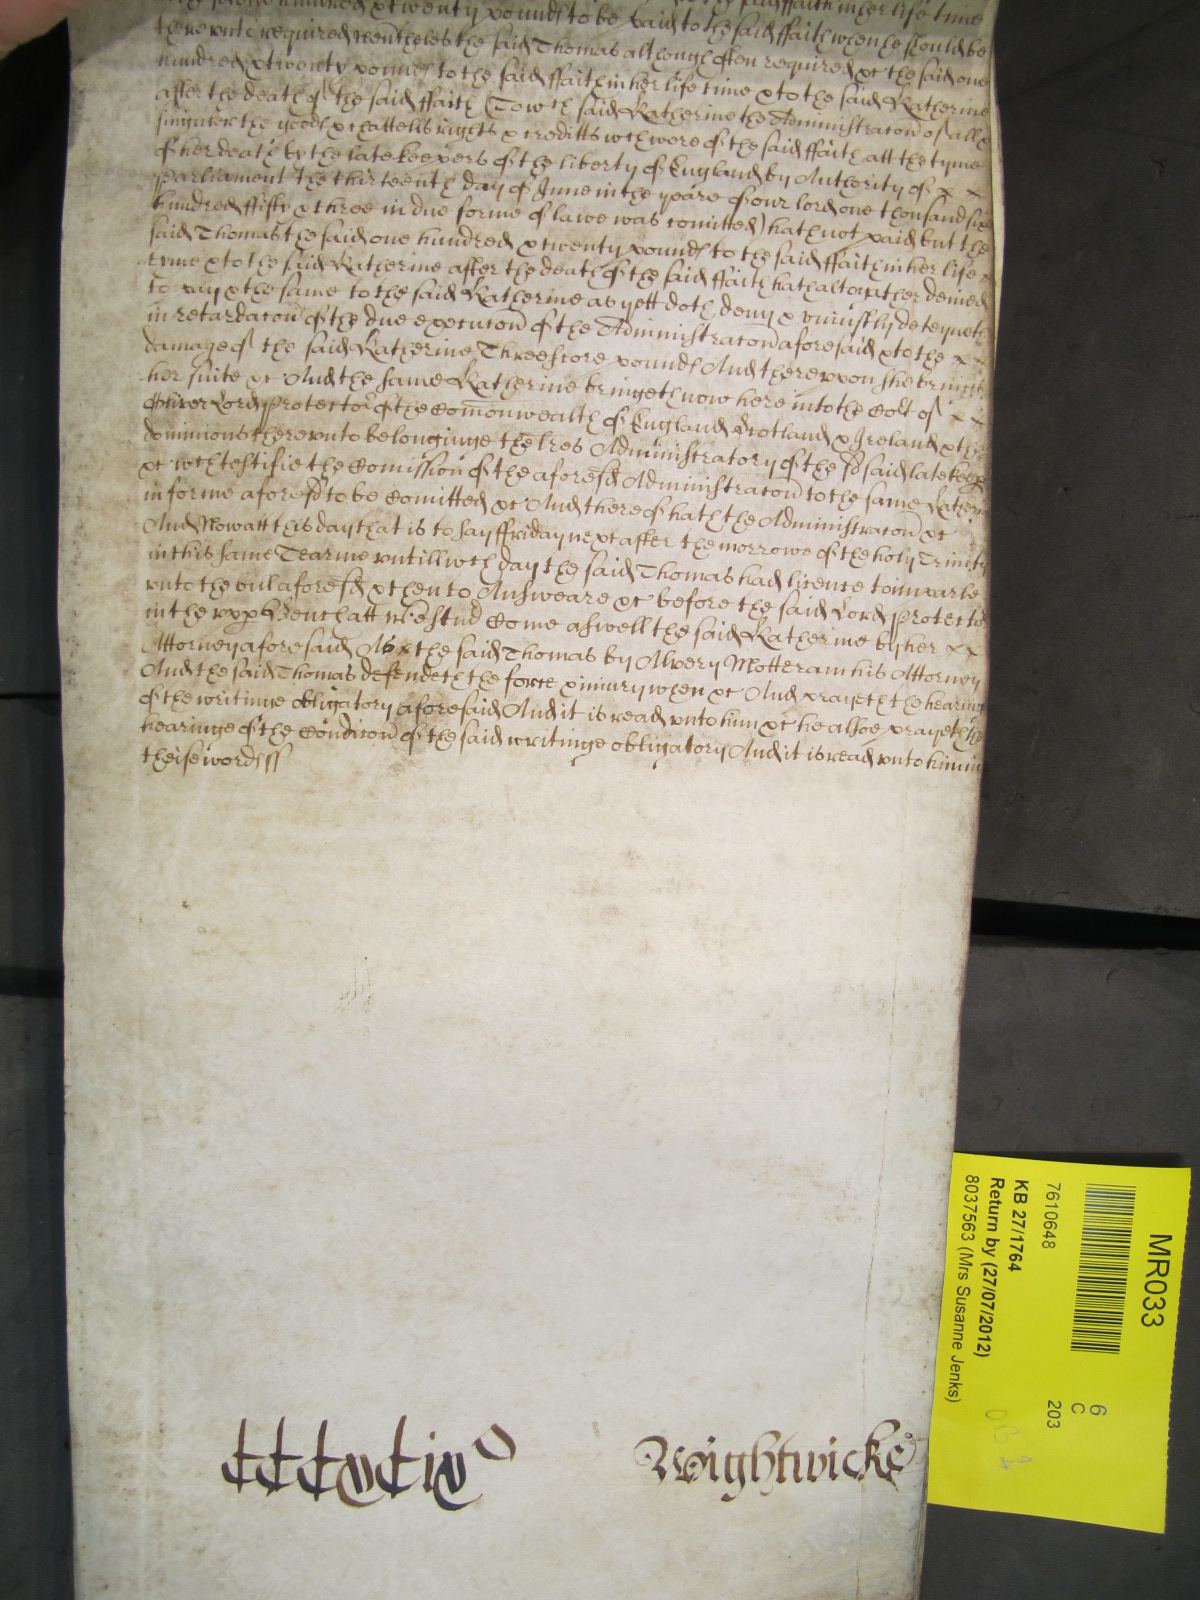 hundred & twenty pounds to be paid to the said ffaith when he should be
thereunto required neverthelesse the said Thomas although often required &c the said one
hundred & twenty pounds to the said ffaith in her life tyme & to the said Katherine
after the death of the said ffaith (To wch said Katherine the Administracon of all &
singuler the goods & chattells rights & creditts wch were of the said ffaith att the tyme
of her death by the late keepers of the liberty of England by Authority of x x
Parliament the thirteenth day of June in the yeare of our lord one thousand six
hundred ffifty & three in due forme of lawe was comitted) hath not paid but the
said Thomas the said one hundred & twenty pounds to the said ffaith in her life x
tyme & to the said Katherine after the death of the said ffaith hath altogather denied
to pay & the same to the said Katherine as yett doth deny & uniustly deteyneth
in retardacon of the due execucon of the Administracon aforesaid & to the x x
damage of the said Katherine Threescore pounds And thereupon she bringeth
her suite &c And the same Katherine bringeth now here into the Cort of x x
Oliver Lord Protector of the Comonwealth of England Scotland & Ireland & the
dominions thereunto belonginge the lres Administratory of the said late keep
&c wch testifie the Comission of the aforesd Administracon to the same Katherine
in forme aforesd to be Comitted &c And thereof hath the Administracon &c
And Now att this day that is to say ffriday next after the morrowe of the holy Trinity
in this same Tearme untill wch day the said Thomas had licence to imparle
unto the bill aforesd & then to Answeare &c before the said Lord Protector
in the upp Bench att Westmr Come aswell the said Katherine by her x x
Attorney aforesaid As the said Thomas by Alvery Motteram his Attorney
And the said Thomas defendeth the force & iniury when &c And prayeth the hearing
of the writinge obligatory aforesaid And it is read unto him &c he alsoe prayeth the
hearinge of the Condicon of the said writinge obligatory And it is read unto him in
theise words ss
Wightwicke
MR033
6
C
203
7610648
KB 27/1764
Return by (27/07/2012)
8037563 (Mrs Susanne Jenks)